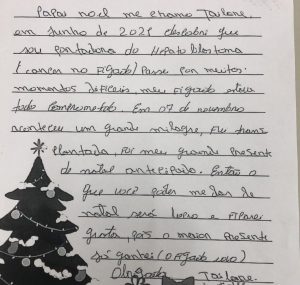 Papai noel me chamo Tailane,
em Junho de 2021 descobri que
sou portadora do Hepatoblastoma
(cancer no Figado) Passei por muitos
momentos dificeis, meu figado estava
todo comprometido. Em 07 de novembro
aconteceu um grande milagre, Fui trans
plantada, Foi meu grande presente
de natal antecipado. Então o
que você poder me dar de
natal será lucro e Ficarei
grata, pois o maior Presente
já ganhei (O Figado novo)
Obrigada Tailane.